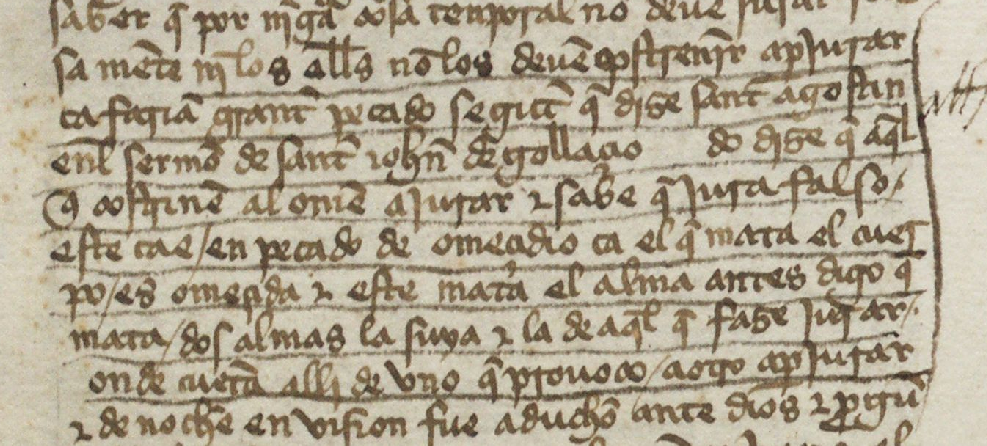 saber q̄ por nīgā cosa temporal no deue jurar
sa mēte nī los ellos nō los deuē cōstrenir a pjurar
ca fariā grant pecado segūt q̄ dize sant agostin
enl sermō de sant iohn̄ degollaçio do dize q̄ aq̄l
q̄ costrinē al ome a jurar ⁊ sabe q̄ jura falso /
este cae / en pecado de omeçidio ca el q̄ mata el cuer
po / es omeçida ⁊ este mata el alma antes digo q̄
mata / dos almas la suya ⁊ la de aq̄l q̄ faze jurar /
onde cuētā alli de vno q̄ prouoco / a otro a pjurar
⁊ de noche en vision fue aducho ante dios ⁊ p̄gū